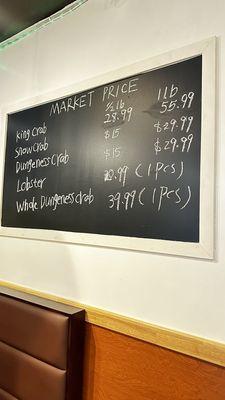 MARKET PRICE
½ lb 1 lb
King Crab 28.99 55.99
Snow Crab $15 $29.99
Dungeness Crab $15 $29.99
Lobster .99 (1 pcs)
Whole Dungeness Crab 39.99 (1 pcs)